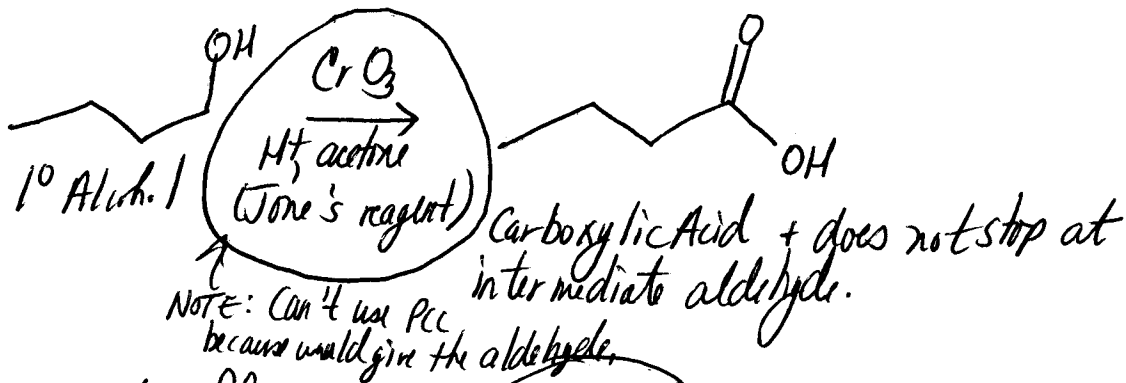 OH
CrO₃
H⁺, acetone
(Jone's reagent)
1° Alcoh.l
O
OH
Carboxylic Acid + does not stop at
intermediate aldehyde.
NOTE: Can't use PCC
because would give the aldehyde.